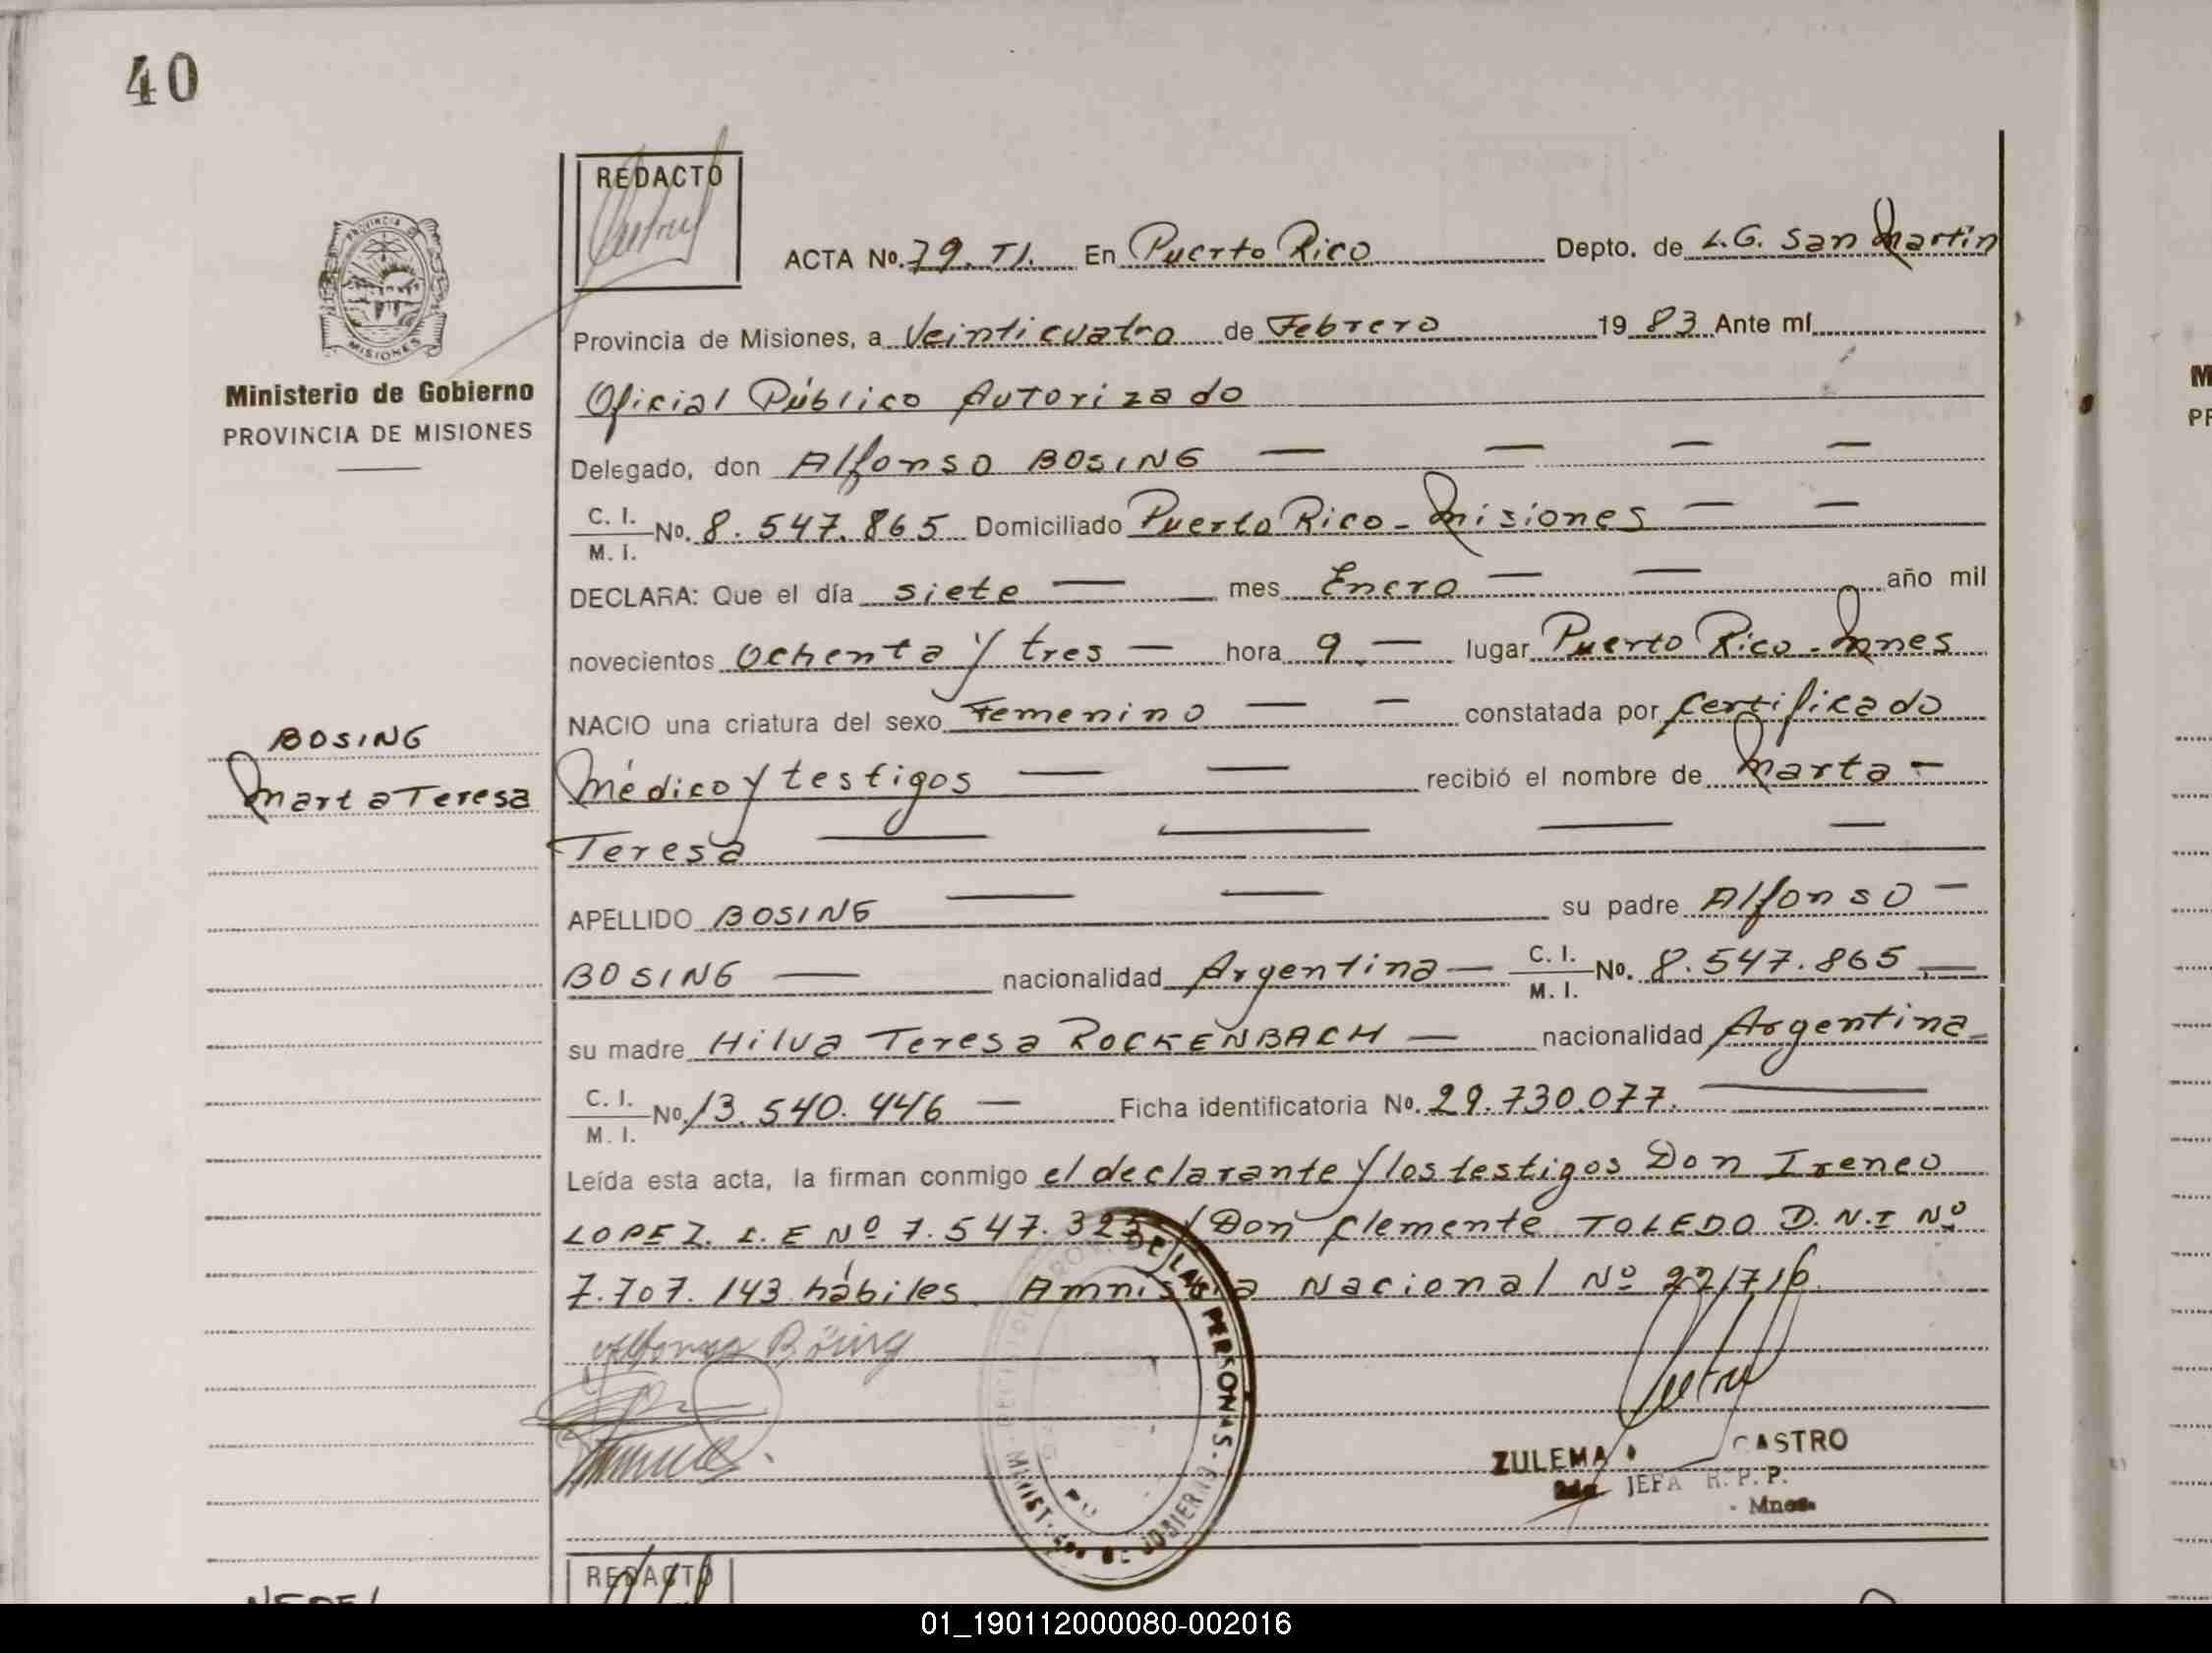 40
REDACTO
PROVINCIA
MISIONES
Ministerio de Gobierno
PROVINCIA DE MISIONES
ACTA No. 79. T1. En Puerto Rico Depto. de L.G. San Martin
Provincia de Misiones, a Veinticuatro de Febrero 19 83 Ante mí
Oficial Público Autorizado
Delegado, don Alfonso BOSING — — — —
C. I. / M. I. No. 8.547.865 Domiciliado Puerto Rico - Misiones — —
DECLARA: Que el día siete — mes Enero — — año mil
novecientos Ochenta y tres — hora 9. — lugar Puerto Rico - Mnes
NACIO una criatura del sexo Femenino — — constatada por Certificado
BOSING
Marta Teresa
Médico y testigos — — recibió el nombre de Marta -
Teresa — — — —
APELLIDO BOSING — — su padre Alfonso -
BOSING — nacionalidad Argentina — C. I. / M. I. No. 8.547.865 —
su madre Hilva Teresa ROCKENBACH — nacionalidad Argentina -
C. I. / M. I. No. 13.540.446 — Ficha identificatoria No. 29.730.077. —
Leída esta acta, la firman conmigo el declarante y los testigos Don Ireneo
LOPEZ. L.E Nº 7.547.325 y Don Clemente TOLEDO D.N.I Nº
7.707.143 hábiles. Amnistia Nacional Nº 22/716.
DE LAS PERSONAS
ZULEMA CASTRO
JEFA R. P. P.
Mnes.
REDACTO
01_190112000080-002016